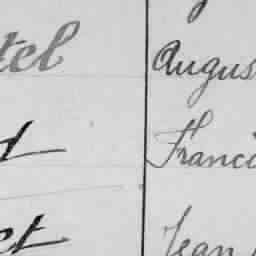 tel Augus
t Franci
et Jean